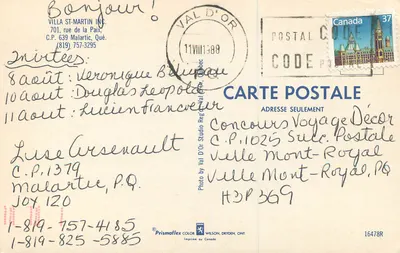 Bonjour!
VILLA ST-MARTIN INC.
701, rue de la Paix,
C.P. 639 Malartic, Qué.
(819) 757-3295
Invitées:
8 août: Veronique
10 août: Douglas Leopold
11 août: Lucien Francoeur
Luse Arsenault
C.P. 1379
Malartic, P.Q.
JOY 1Z0
1-819-757-4185
1-819-825-5885
VAL D'OR
POSTAL CODE
CODE
Canada 37
CARTE POSTALE
ADRESSE SEULEMENT
Concours Voyage Décor
C.P. 1025 Succ. Postale
Ville Mont-Royal
Ville Mont-Royal, PQ
H3P 3G9
Photo by Val D'Or Studio
Prismaflex COLOR WILSON, DRYDEN, ONT.
Imprimé au Canada
16478R